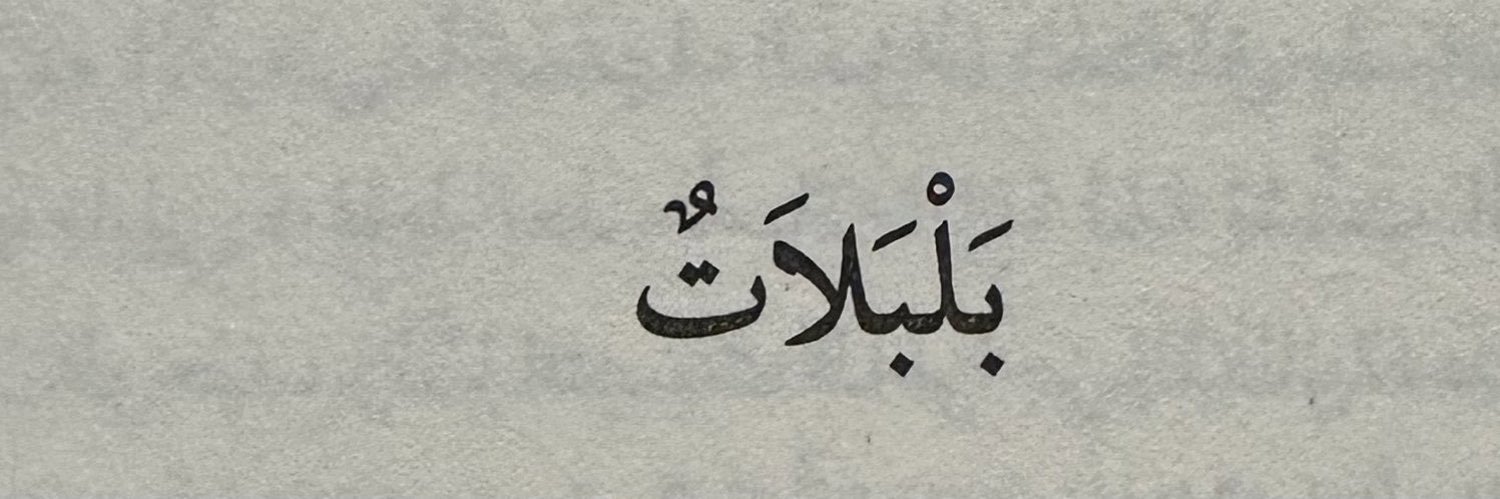 بَلْبَلاَتٌ